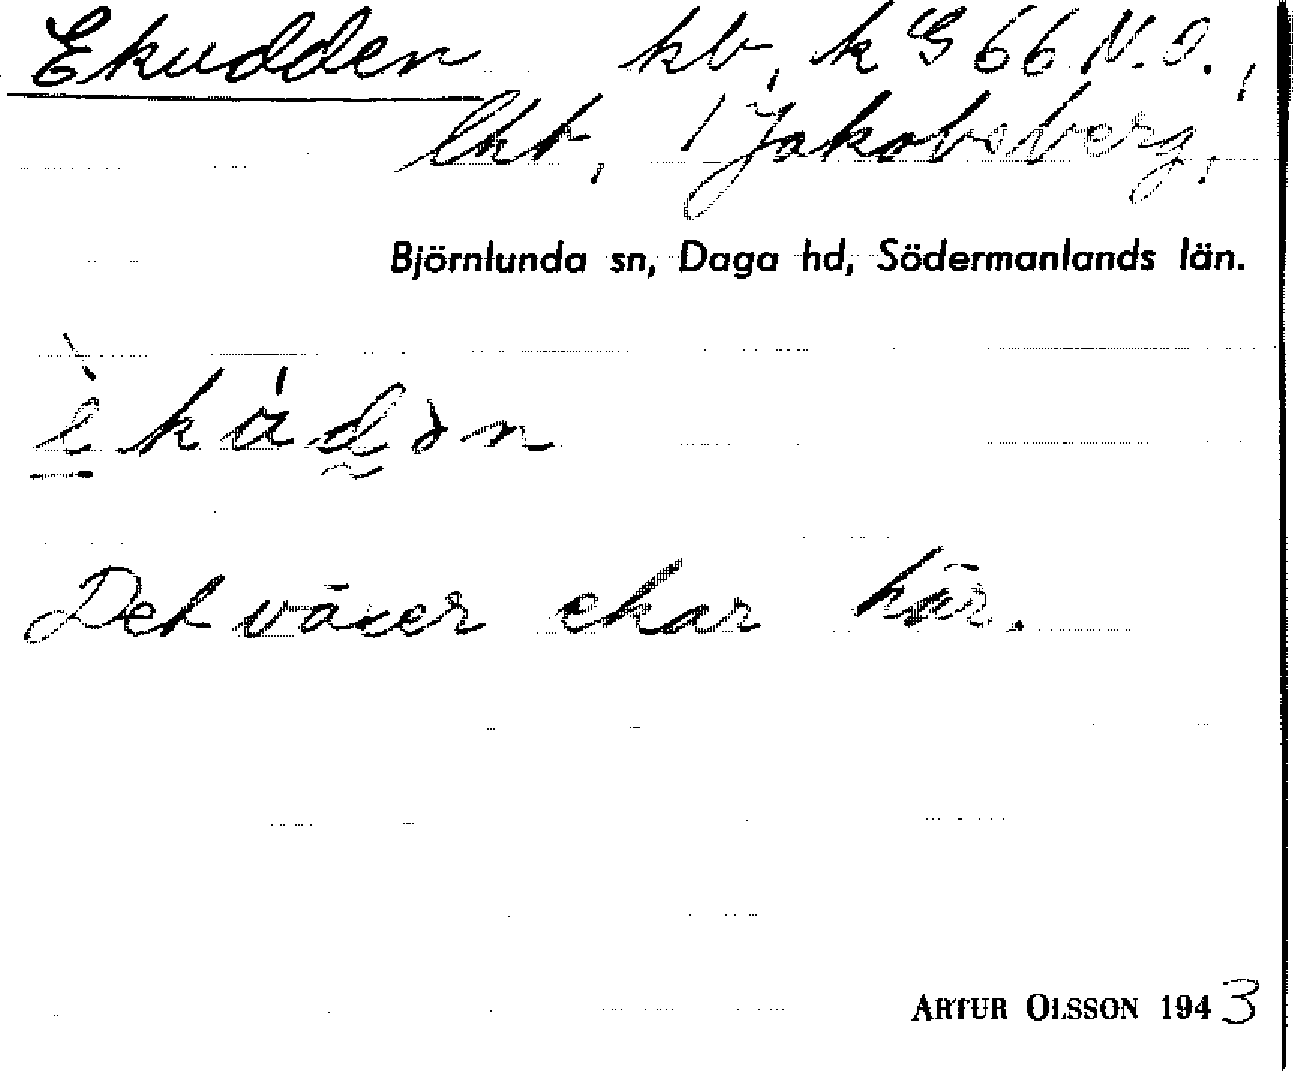 Ekudden kb, k G 66 N.O.,
lht, 1 Jakobsberg.
Björnlunda sn, Daga hd, Södermanlands län.
Det växer ekar här.
ARTUR OLSSON 1943